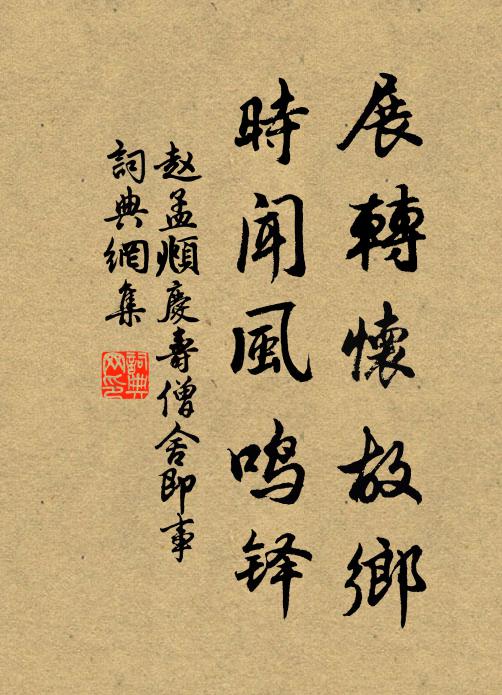 展轉懷故鄉
時闻風鸣铎
赵孟頫慶壽僧舍即事
詞典網集
詞典网印